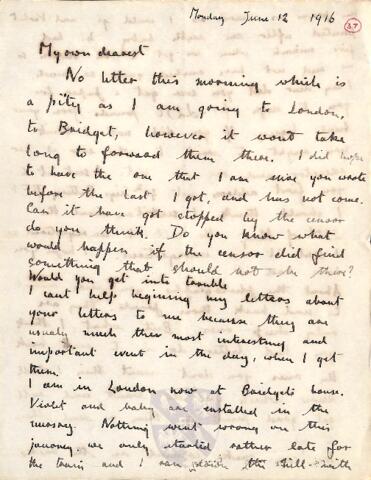 Monday June 12 1916
37
My own dearest
No letter this morning which is
a pity as I am going to London,
to Bridget, however it wont take
long to forward them there. I did hope
to have the one that I am sure you wrote
before the last I got, and has not come.
Can it have got stopped by the censor
do you think. Do you know what
would happen if the censor did find
something that should not be there?
Would you get into trouble
I cant help beginning my letters about
your letters to me because they are
usualy much ther most interesting and
important event in the day, when I get
them.
I am in London now at Bridgets house.
Violet and baby are enstalled in the
nursary. Nothing went wrong on this
journey, we only started rather late for
the train and I ran down the hill with